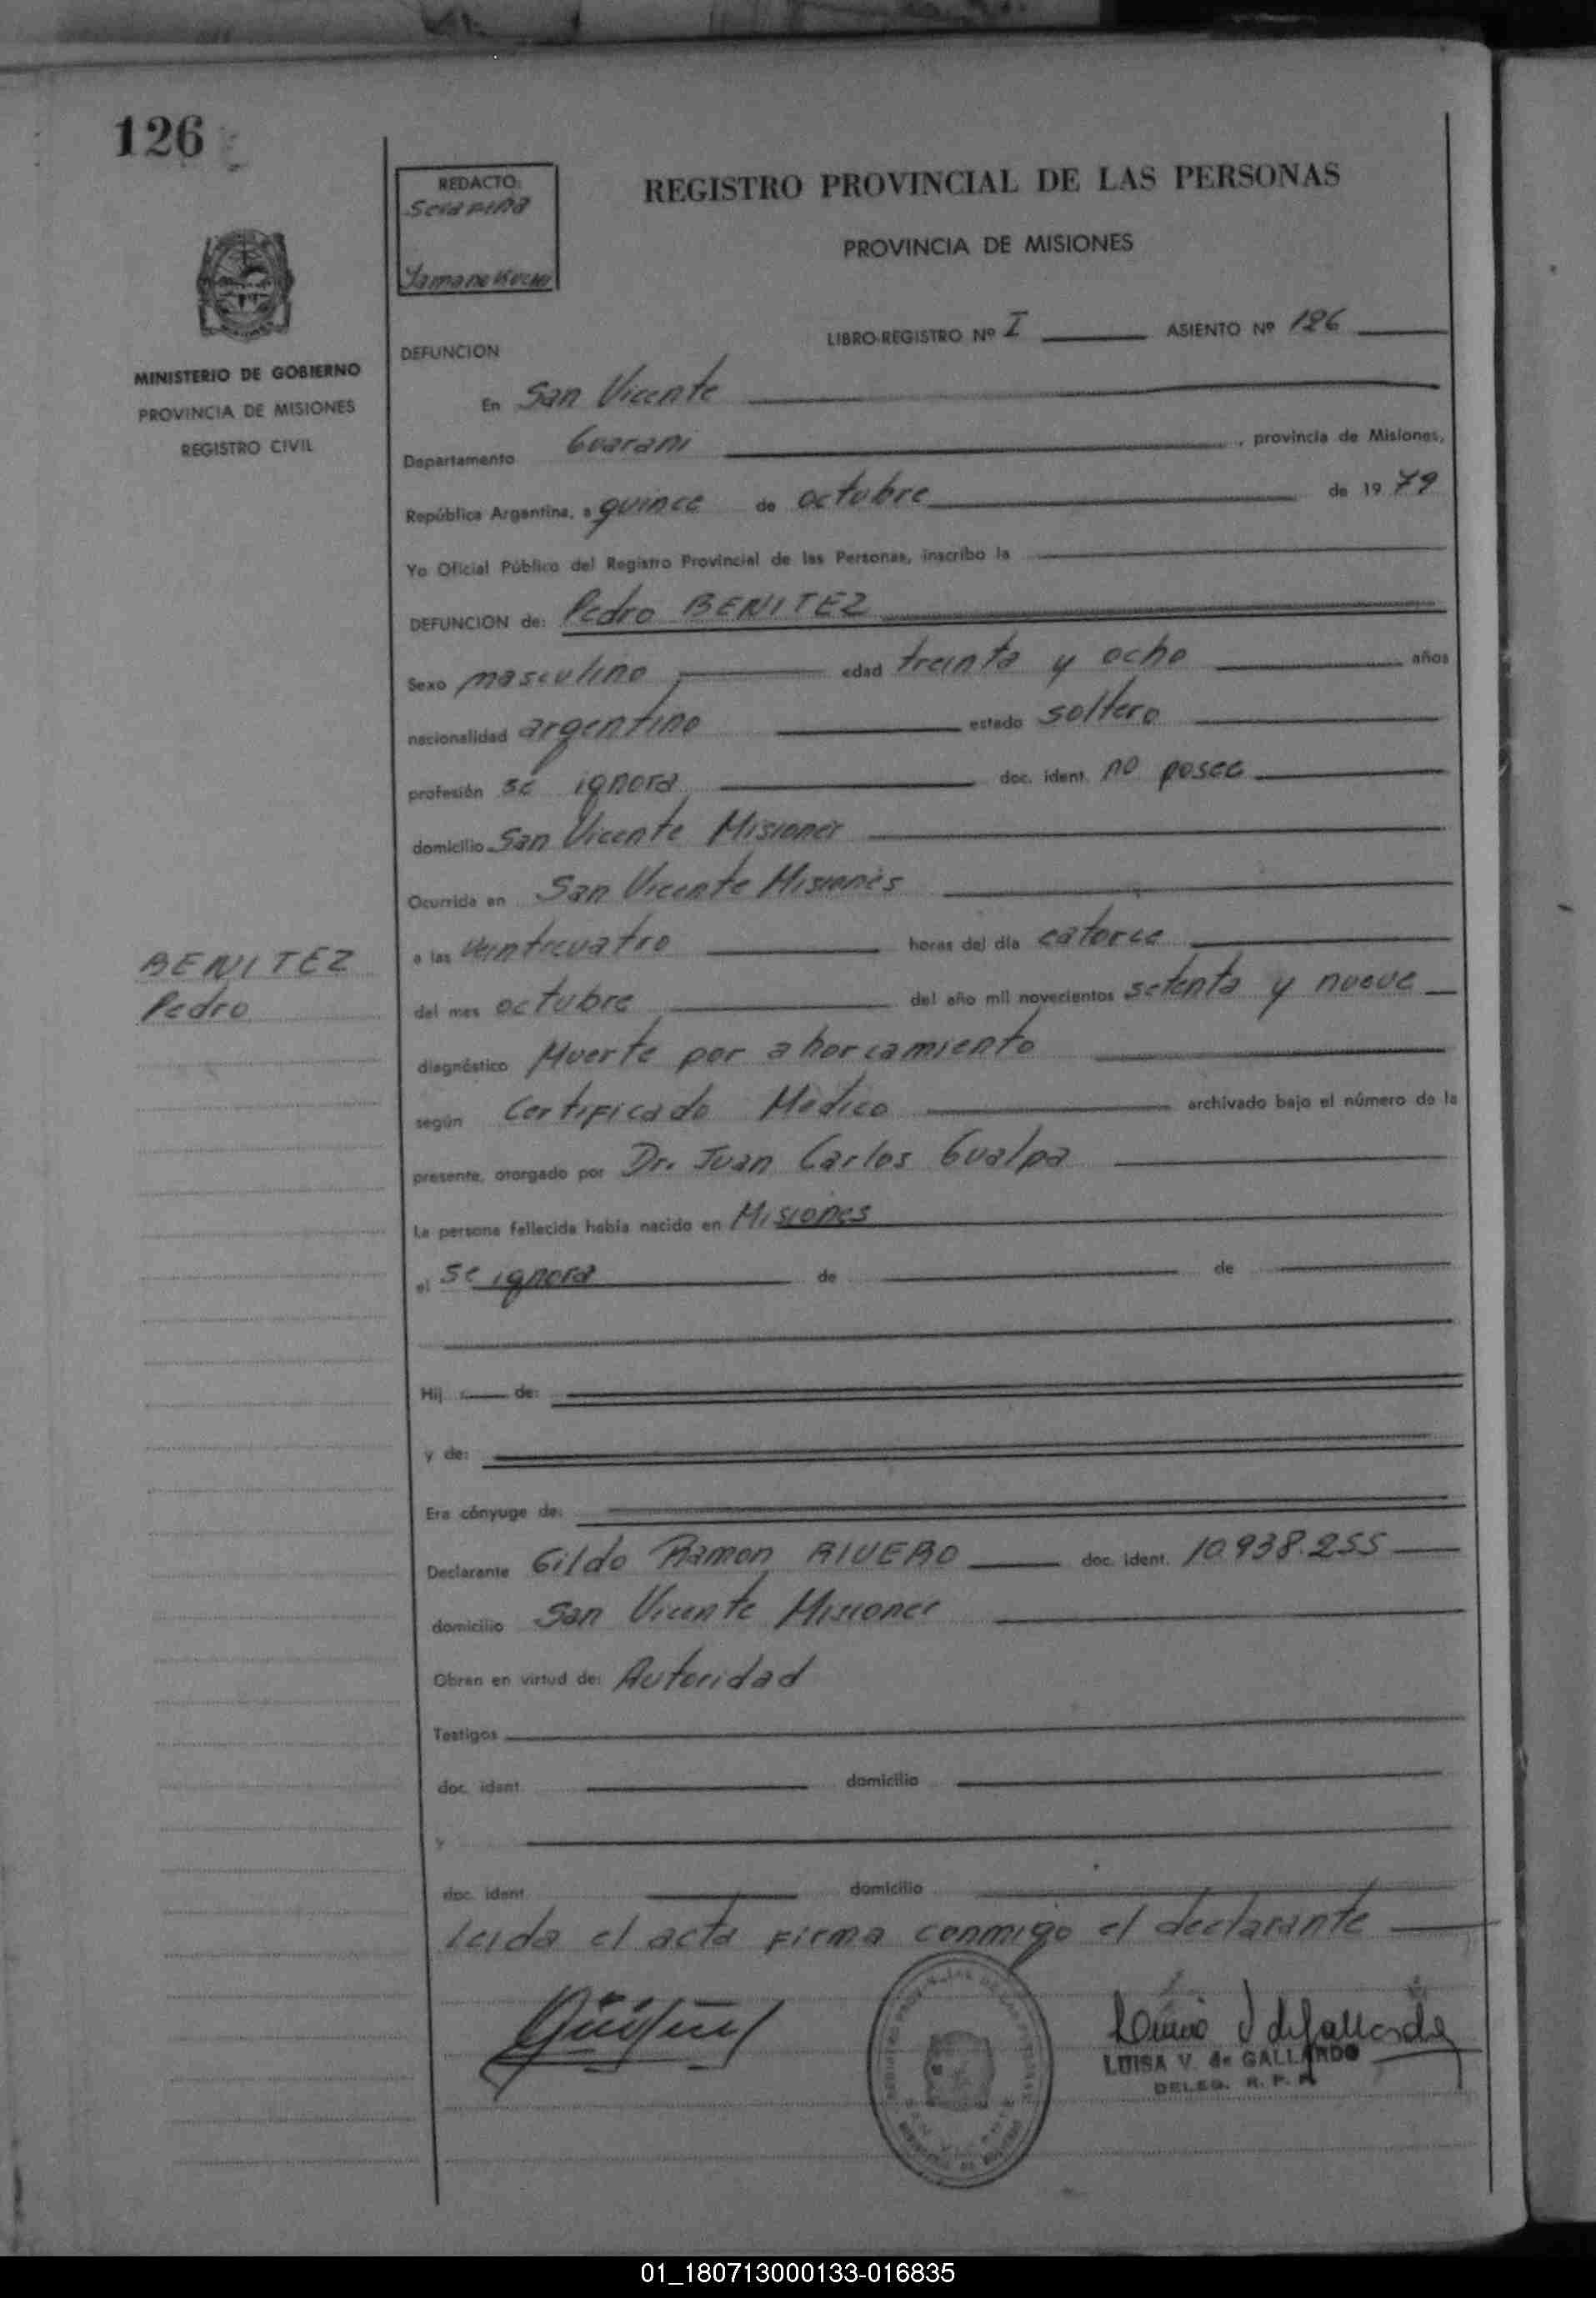 126
REDACTO:
Serapina
REGISTRO PROVINCIAL DE LAS PERSONAS
PROVINCIA DE MISIONES
LIBRO-REGISTRO Nº I ASIENTO Nº 126
DEFUNCION
MINISTERIO DE GOBIERNO
PROVINCIA DE MISIONES
REGISTRO CIVIL
En San Vicente
Departamento Guarani, provincia de Misiones,
República Argentina, a quince de octubre de 1979
Yo Oficial Público del Registro Provincial de las Personas, inscribo la
DEFUNCION de: Pedro BENITEZ
Sexo masculino edad treinta y ocho años
nacionalidad argentino estado soltero
profesión se ignora doc. ident. no posee
domicilio San Vicente Misiones
Ocurrida en San Vicente Misiones
a las veinticuatro horas del día catorce
BENITEZ
Pedro
del mes octubre del año mil novecientos setenta y nueve
diagnóstico Muerte por ahorcamiento
según Certificado Medico archivado bajo el número de la
presente, otorgado por Dr. Juan Carlos Gualpa
La persona fallecida había nacido en Misiones
el se ignora de de
Hij de:
y de:
Era cónyuge de:
Declarante Gildo Ramon RIVERO doc. ident. 10.938.255
domicilio San Vicente Misiones
Obran en virtud de: Autoridad
Testigos
doc. ident. domicilio
y
doc. ident. domicilio
Leida el acta firma conmigo el declarante
LUISA V. de GALLARDO
DELEG. R. P. P.
01_180713000133-016835